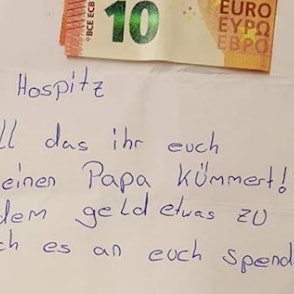 EURO
10 ΕΥΡΩ
©BCE ECB ЕВРО
Hospitz
ll das ihr euch
einen Papa kümmert!
dem geld etwas zu
ch es an euch spend